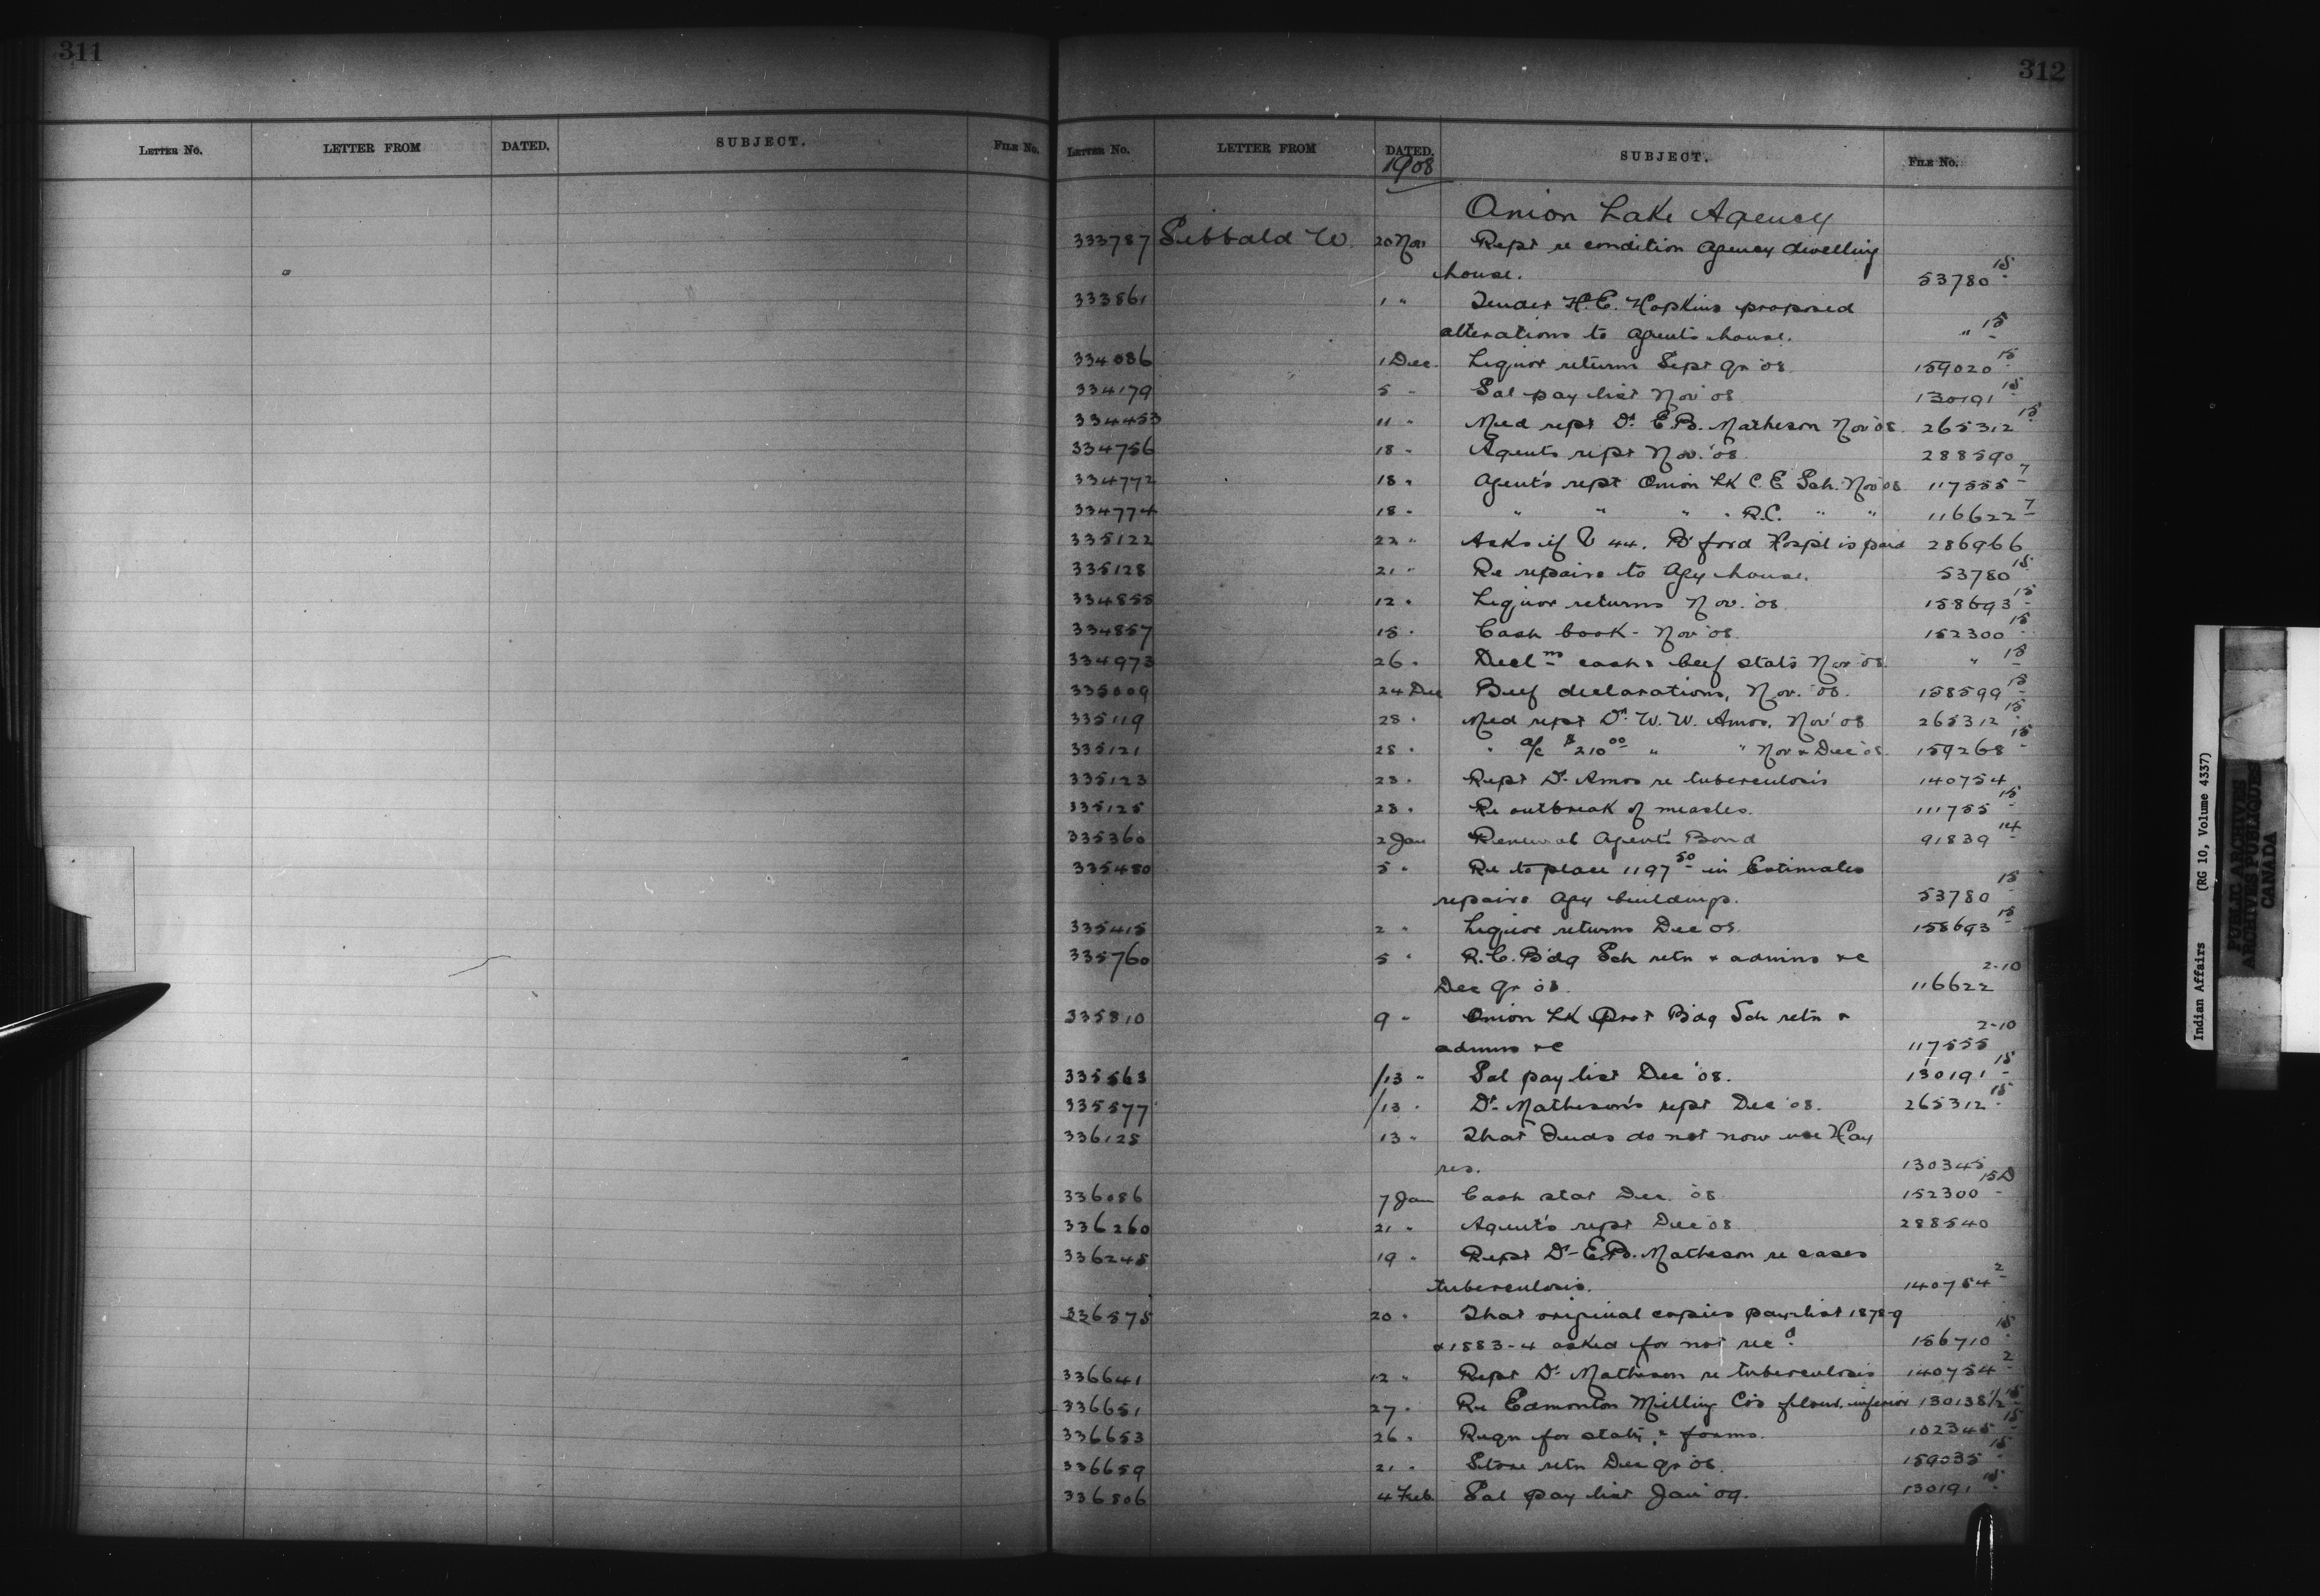 311
312
LETTER No. LETTER FROM DATED. SUBJECT. FILE No.
LETTER No. LETTER FROM DATED. SUBJECT. FILE No.
1908
Onion Lake Agency
333787 Sibbald W. 20 Nov Rept re condition Agency dwelling
house. 53780 15
333861 1 " Tender H.E. Hopkins proposed
alterations to agents house. " 15
334086 1 Dec. Liquor returns Sept qr '08 159020 15
334179 5 " Sal pay list Nov '08 130191 15
334453 11 " Med rept Dr. E.B. Matheson Nov '08. 265312 15
334756 18 " Agents rept Nov. '08 288590
334772 18 " Agent's rept Onion Lk C.E Sch. Nov '08 117555 7
334774 18 " " " " " R.C. " " 116622 7
335122 22 " Asks if V 44. B'ford Hospl is paid 286966
335128 21 " Re repairs to Agy house. 53780 15
334855 12 " Liquor returns Nov. '08 158693 15
334857 15 " Cash book - Nov '08. 152300 15
334973 26 " Declns cash & beef stats Nov '08. " 15
335009 24 Dec Beef declarations, Nov. '08. 158599 15
335119 28 " Med rept Dr. W. W. Amos, Nov '08 265312 15
335121 28 " " a/c $210 00 " " Nov & Dec '08. 159268 15
335123 23 " Rept Dr. Amos re tuberculosis 140754
335125 28 " Re outbreak of measles. 111755 15
335360 2 Jan Renewal Agent's Bond 91839 14
335480 5 " Re to place 1197 50 in Estimates
repairs Agy buildings. 53780 15
335415 2 " Liquor returns Dec '08. 158693 15
335760 5 " R.C. B'dg Sch retn & admins &c
Dec qr '08. 116622 2-10
335810 9 " Onion Lk Prot Bdg Sch retn &
admns &c 117555 2-10
335563 /13 " Sal pay list Dec '08. 130191 15
335577 /13 " Dr. Matheson's rept Dec '08. 265312 15
336125 13 " That Inds do not now use Hay
res. 130345
336086 7 Jan Cash stat Dec. '08 152300 15D
336260 21 " Agent's rept Dec '08 288540
336245 19 " Rept Dr. E.B. Matheson re cases
tuberculosis. 140754 2
336575 20 " That original copies pay-list 1878-9
& 1883-4 asked for not recd. 156710 15
336641 12 " Rept Dr. Matheson re tuberculosis 140754 2
336651 27 " Re Edmonton Milling Co's flour inferior 130138 1/2 15
336653 26 " Reqn for staty & forms. 102345 15
336659 21 " Store retn Dec qr '08. 159035 15
336806 4 Feb. Sal pay list Jan '09. 130191 15
Indian Affairs (RG 10, Volume 4337)
PUBLIC ARCHIVES
ARCHIVES PUBLIQUES
CANADA